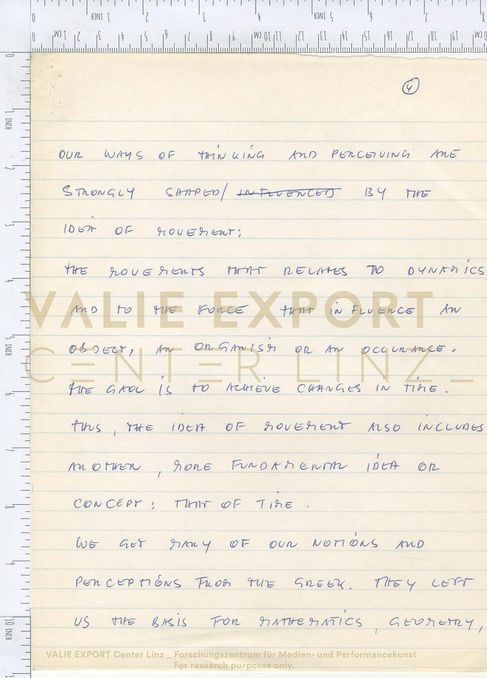 4
OUR WAYS OF THINKING AND PERCEIVING ARE
STRONGLY SHAPED/ INFLUENCED BY THE
IDEA OF MOVEMENT:
THE MOVEMENTS THAT RELATES TO DYNAMICS
AND TO THE FORCE THAT INFLUENCE AN
OBJECT, AN ORGANISM OR AN OCCURANCE.
THE GAOL IS TO ACHIEVE CHANGES IN TIME.
THUS, THE IDEA OF MOVEMENT ALSO INCLUDES
ANOTHER, MORE FUNDAMENTAL IDEA OR
CONCEPT: THAT OF TIME.
WE GET MANY OF OUR NOTIONS AND
PERCEPTIONS FROM THE GREEK. THEY LEFT
US THE BASIS FOR MATHEMATICS, GEOMETRY,
VALIE EXPORT
CENTER LINZ_
VALIE EXPORT Center Linz _ Forschungszentrum für Medien- und Performancekunst
For research purposes only.